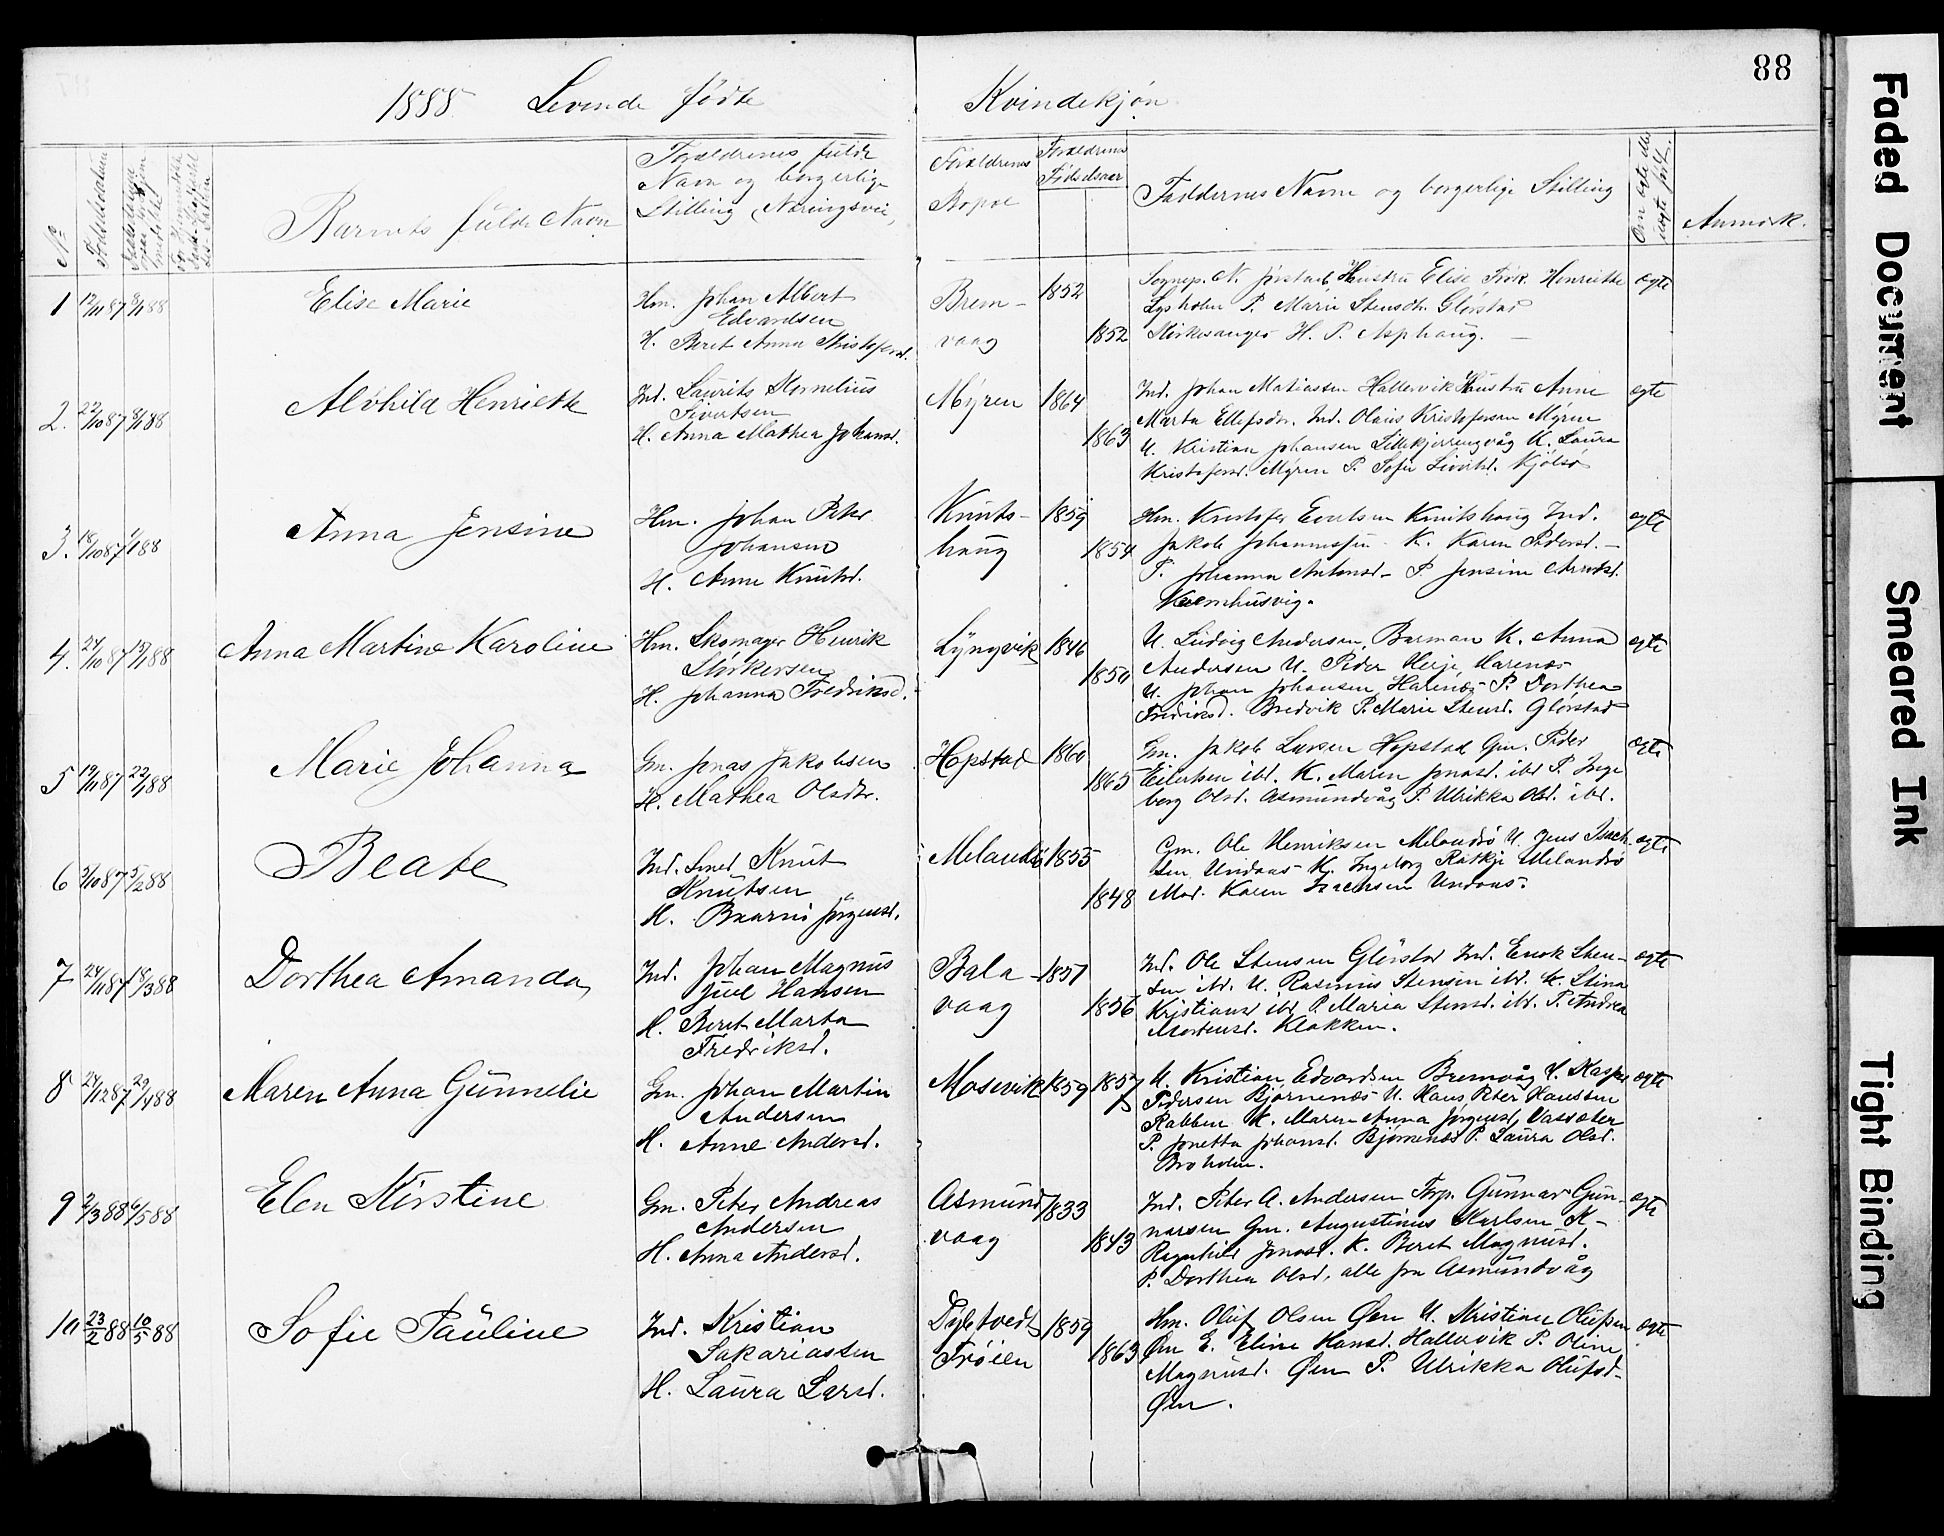 88
1888 Levende fødte Kvindekjøn
No
Fødselsdatum
Barnets fulde Navn
Forældrenes fulde
Navn og borgerlige
Stilling (Næringsvei)
Forældrenes
Bopæl
Forældrenes
Fødselsaar
Faddernes Navne og borgerlige Stilling
Anmærk.
1 12/11 87 8/1 88 Elise Marie
Hm. Johan Albert
Edvardsen
H. Beret Anna Kristofersd.
Brem-
vaag
1852
1852
Sognep. N. Jørstad, Hustru Elise, Frøk. Henriette
Lysholm P. Marie Stensdr. Glørstad
Kirkesanger H. P. Asphaug. -
ægte
2. 22/10 87 8/1 88 Alvhild Henriette
Ind. Laurits Kornelius
Sivertsen
H. Anna Mathea Johansd.
Myren
1864
1863
Ind. Johan Matiassen Hallervik Hustru Anne
Marta Ellefsdr. Ind. Olaus Kristofersen Myren
U. Kristian Johansen Lillekjerringvåg K. Laura
Kristofersd. Myren P. Sofie Sivertsd. Kjølsø
ægte
3. 18/10 87 1/1 88 Anna Jensine
Hm. Johan Peter
Johansen
H. Anne Knutsd.
Knuts-
haug
1859
1854
Hm. Kristofer Evertsen Knutshaug Ind.
Jakob Johannessen K. Karen Pedersd. -
P. Johanna Antonsd - P. Jensine Arntsd.
Kvernhusvig.
ægte
4. 24/10 87 19/1 88 Anna Martine Karoline
Hm. Skomager Henrik
Størkersen
H. Johanna Fredriksd.
Lyngvik
1846
1850
U. Ludvig Andersen, Barman K. Anna
Andersen U. Peder Herje, Harenæs
U. Johan Johansen, Harenæs P. Dorthea
Fredriksd. Bredvik P. Marie Stensd. Glørstad
ægte
5 19/11 87 22/1 88 Marie Johanna
Gm. Jonas Jakobsen
H. Mathea Olsdtr.
Hopstad
1860
1865
Gm. Jakob Larsen Hopstad Gm. Peder
Eilertsen ibd. K. Maren Jonasd. ibd P. Inge
borg Olsd. Asmundvåg P. Ulrikka Olsd. ibd.
ægte
6 3/10 87 5/2 88 Beate
Ind. Smed Knut
Knutsen
H. Beret Jørgensd.
Melandsø
1855
1848
Gm. Ole Henriksen Melandsø U. Jens Isach
sen Undaas K. Ingeborg Ratkje Melandsø
Mad. Karen Isachsen Undaas.
ægte
7 24/11 87 18/3 88 Dorthea Amanda
Ind. Johan Magnus
Juel Hansen
H. Beret Marta
Fredriksd.
Bala-
vaag
1857
1856
Ind. Ole Stensen Glørstad Ind. Enok Sten-
sen ibd. U. Rasmus Stensen ibd. K. Stina
Kristiansd ibd P. Maria Stensd. ibd. P. Andrea
Mortensd. Klakken.
ægte
8 24/12 87 29/4 88 Maren Anna Gunnelie
Gm. Johan Martin
Andersen
H. Anne Andersd.
Mosevik
1859
1857
U. Kristian Edvardsen Bremvåg U. Kasper
Pedersen Bjørnenæs U. Hans Peter Hanssen
Rabben K. Maren Anna Jørgensd. Vassæter
P. Jonetta Johansd. Bjørnenæs P. Laura Olsd.
Broholm.
ægte
9 2/3 88 6/5 88 Elen Kirstine
Gm. Peter Andreas
Andersen
H. Anna Andersd.
Asmund
vaag
1833
1843
Ind. Peter A. Andersen Forp. Gunnar Gun-
narsen Gm. Augustinus Karlsen K-
Ragnhild Jonasd. K. Beret Magnusd.
P. Dorthea Olsd. alle fra Asmundvåg
ægte
10 23/2 88 10/5 88 Sofie Pauline
Ind. Kristian
Sakariassen
H. Laura Larsd.
Frøien
1859
1863
Hm. Oluf Olsen Øen U. Kristian Olufsen
Øen E. Eline Hansd. Hallervik P. Oline
Magnusd. Øen P. Ulrikka Olufsd-
Øen.
ægte
Faded Document
Smeared Ink
Tight Binding